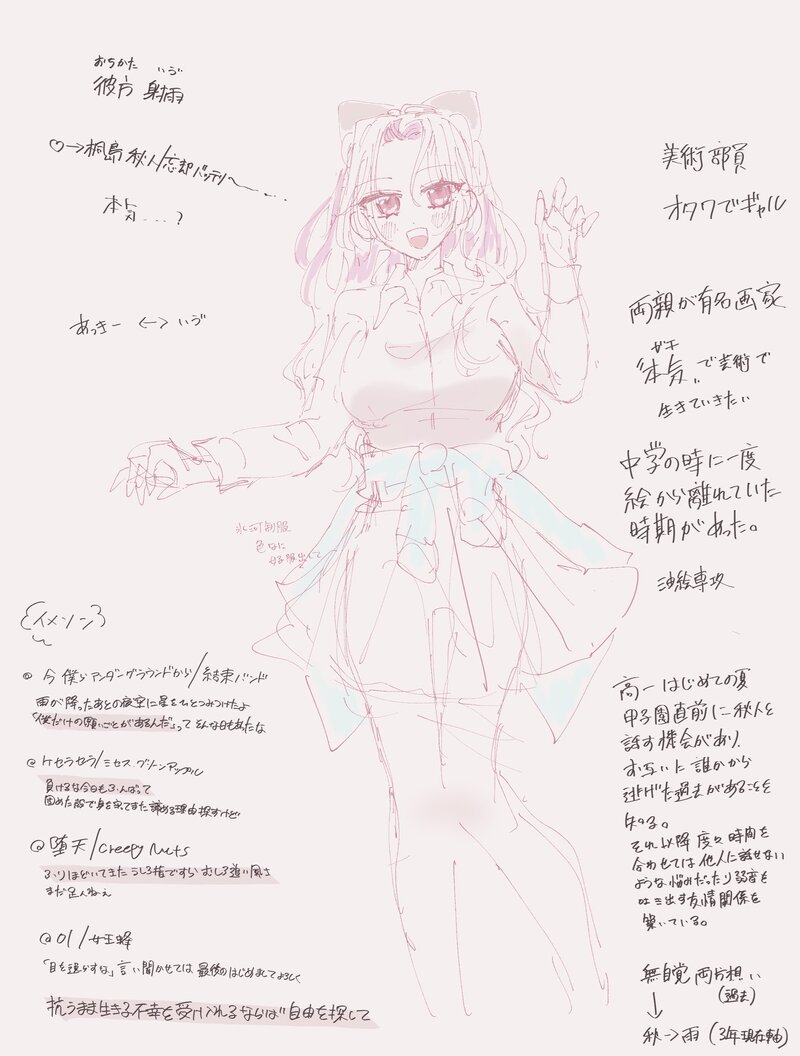 おちかた いづ
彼方 射雨
♡→桐島 秋人/忘却バッテリー
本気...?
あっきー ←→ いづ
美術部員
オタクでギャル
両親が有名画家
ガチ
本気で美術で
生きていきたい
中学の時に一度
絵から離れていた
時期があった。
油絵専攻
氷河制服
色なに
イメソン
今僕らアンダーグラウンドから/結束バンド
雨が降ったあとの夜空に星をひとつみつけたよ
「僕だけの願いごとがあるんだ」って そんな日もあったな
ケセラセラ/ミセスグリーンアップル
負けるな今日もふんばって
固めた殻で身を守ってすた諦める理由探すけど
堕天/Creepy Nuts
ふりほどいてきたうしろ指ですら むしろ追い風さ
まだ足んねぇ
01/女王蜂
「目を覚かすな」言い聞かせては 最後のはじめましてよろしく
抗うまま生きる不幸を受け入れるならば 自由を探して
高一はじめての夏
甲子園直前に秋人と
話す機会があり、
お互いに誰かから
逃げた過去があることを
知る。
それ以降度々時間を
合わせては他人に話せない
ような悩みだったり弱音を
吐き出す友情関係を
築いている。
無自覚 両片想い
(過去)
↓
秋→雨 (3年現在軸)